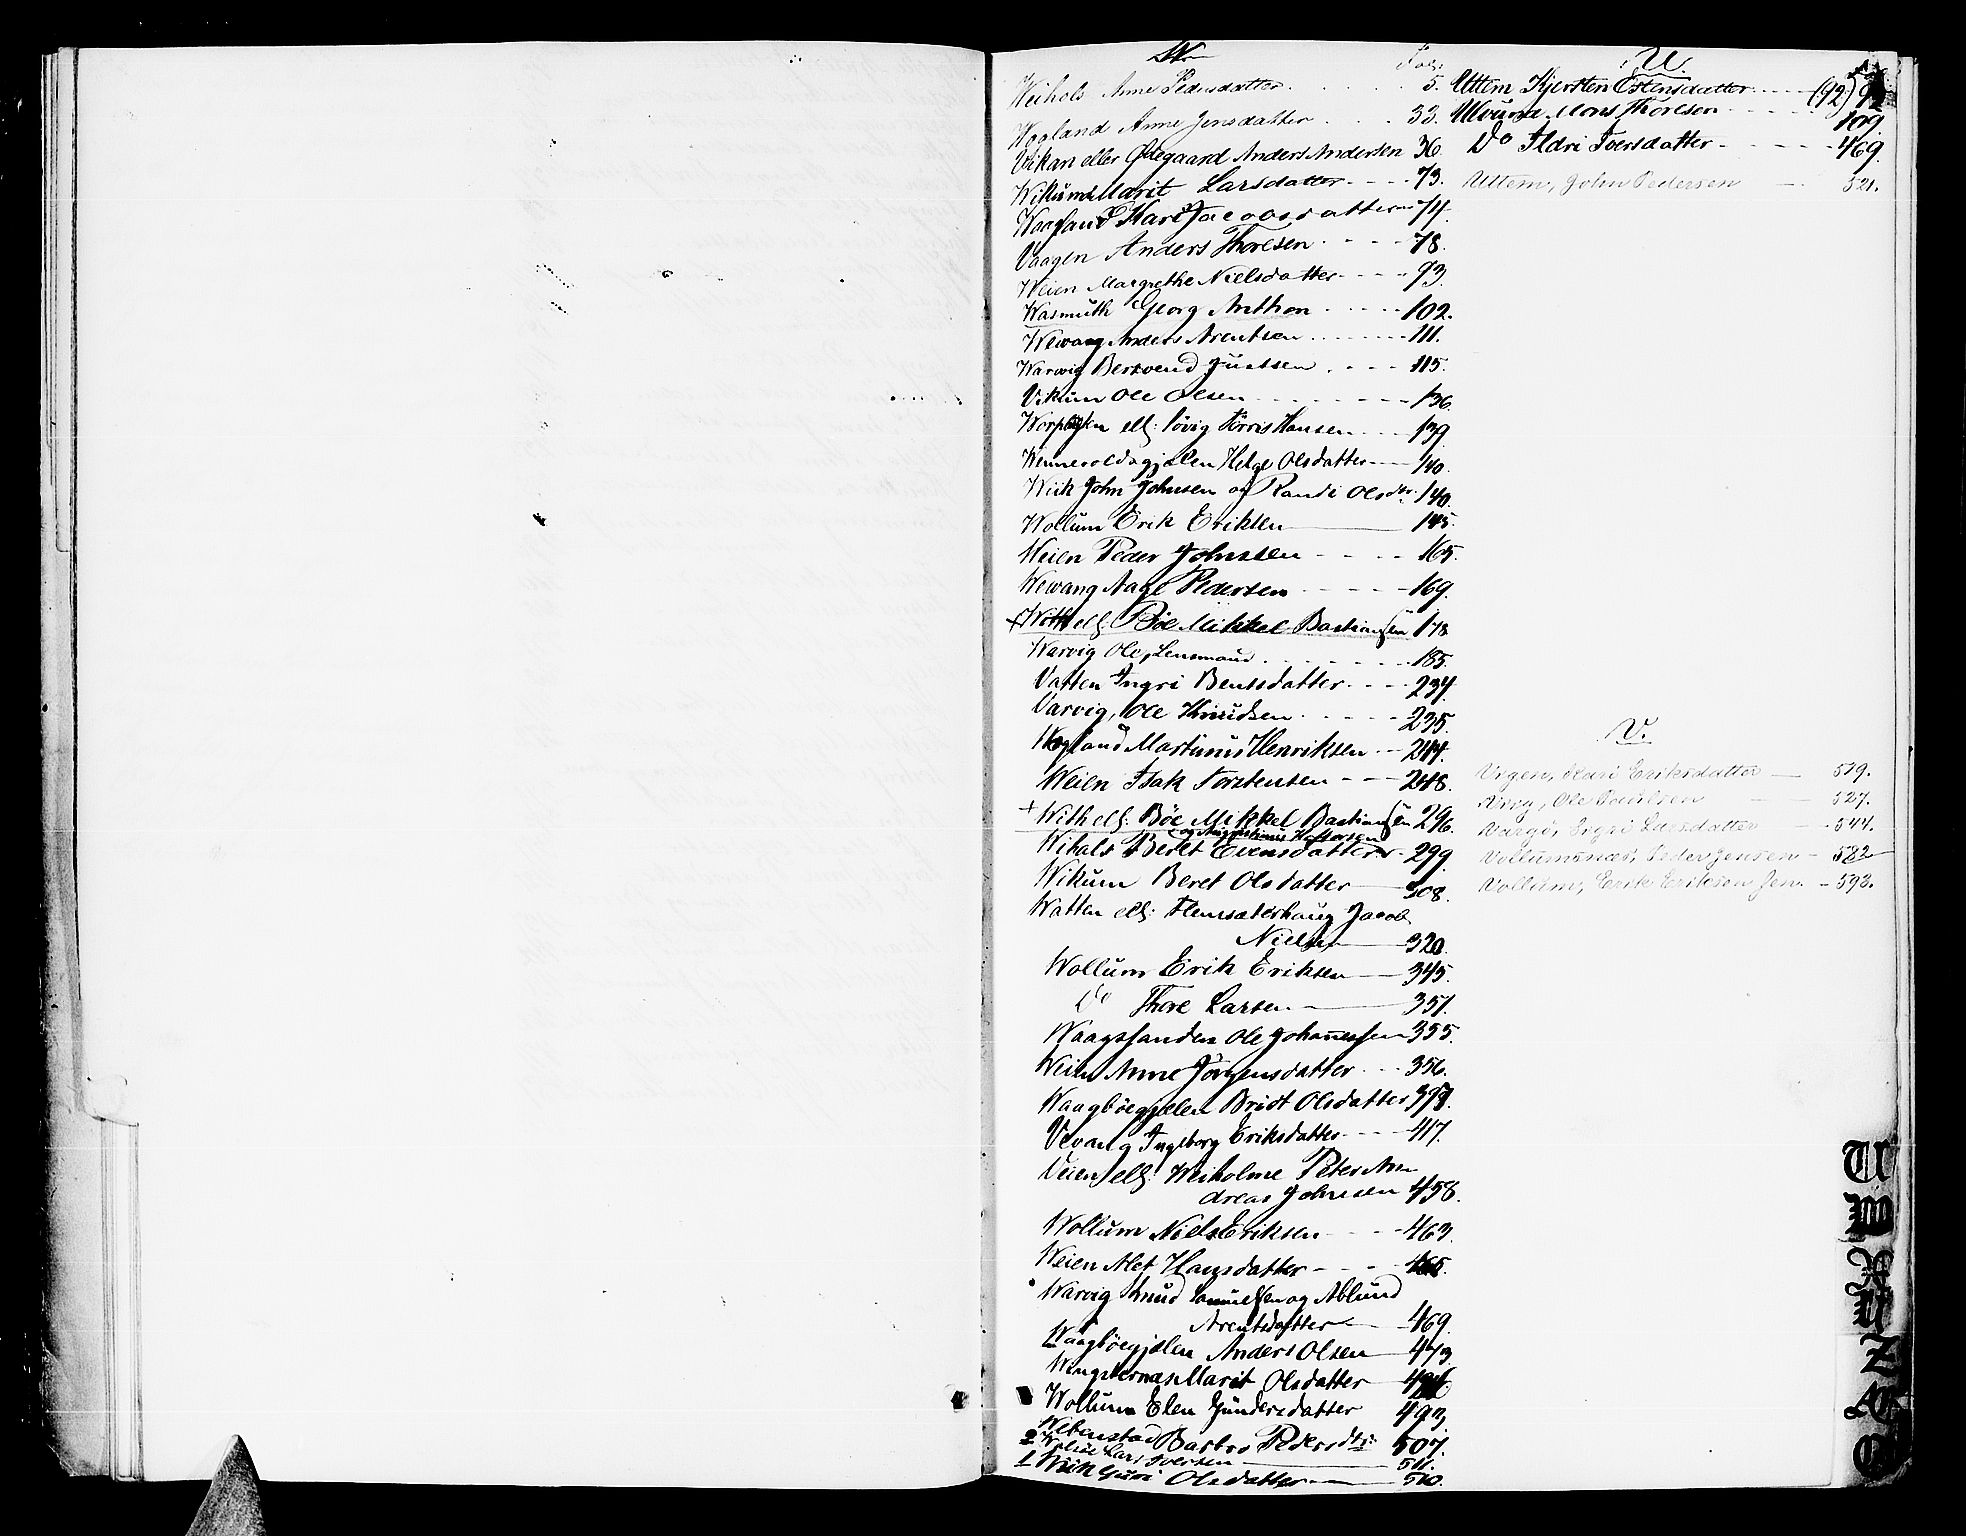 W.
Fol:
Weihols Anne Pedersdatter 5.
Wogland Anne Jensdatter 33.
Vikan eller Ødegaard Anders Andersen 36
Wikum Marit Larsdatter 73.
Waagland Kari Jacobsdatter 74.
Vaagen Anders Thoresen 78.
Weien Margrethe Nielsdatter 93.
Wasmuth Georg Anthon 102.
Wewang Anders Arentsen 111.
Warvig Bersvend Justsen 115.
Vikum Ole Olsen 136
ell: Løvig Tørris Hansen 139
Helge Olsdatter 140.
Wiik John Johnsen og Randi Olsdtr. 140.
Wollum Erik Eriksen 145.
Weien Peder Johnsen 165.
Wewang Aage Pedersen 169.
+ With ell: Böe Mikkel Bastiansen 178
Warvig Ole, Lensmand 185.
Vatten Ingri Bentsdatter 234.
Varvig, Ole Knudsen 235.
Wogland Martinus Henriksen 244.
Weien Isak Torstensen 248.
+ With ell: Böe Mikkel Bastiansen 296.
Wihals Beret Evensdatter 299.
Wikum Beret Olsdatter 308.
Watten ell: Hemsæterhaug Jacob
Nielsen 320.
Wollum Erik Eriksen 345.
Do Thore Larsen 351.
Waagssanden Ole Johannessen 355.
Weien Anne Jörgensdatter 356.
Waagböegjelen Bridt Olsdatter 378.
Vevang Ingeborg Eriksdatter 417.
Veien ell: Weiholme Peter An-
dreas Johnsen 458.
Wollum Niels Eriksen 463.
Weien Alet Hansdatter 465.
Warvig Knud Samuelsen og Ablund
Arentsdatter 469.
Waagböegjelen Anders Olsen 473
Wengsternæs Marit Olsdatter
Wollum Elen Gundersdatter 493.
Webenstad Barbro Pedersdtr: 507.
2 Lars Iversen 511.
1 Wiik Guri Olsdatter 510.
U.
Uttem Kjersten Estensdatter (92)
Ulvund Mons Thoresen 109.
Do Ildri Iversdatter 469.
Uttem, John Pedersen 521.
V.
Vegen, Kari Eriksdatter 519.
Ole Paulsen 527.
Ingri Larsdatter 544.
Vollumsnæs, Peder Jensen 582
Vollum, Erik Eriksen Jen. 593.
U
W
X
Y
Z
Æ
Ø